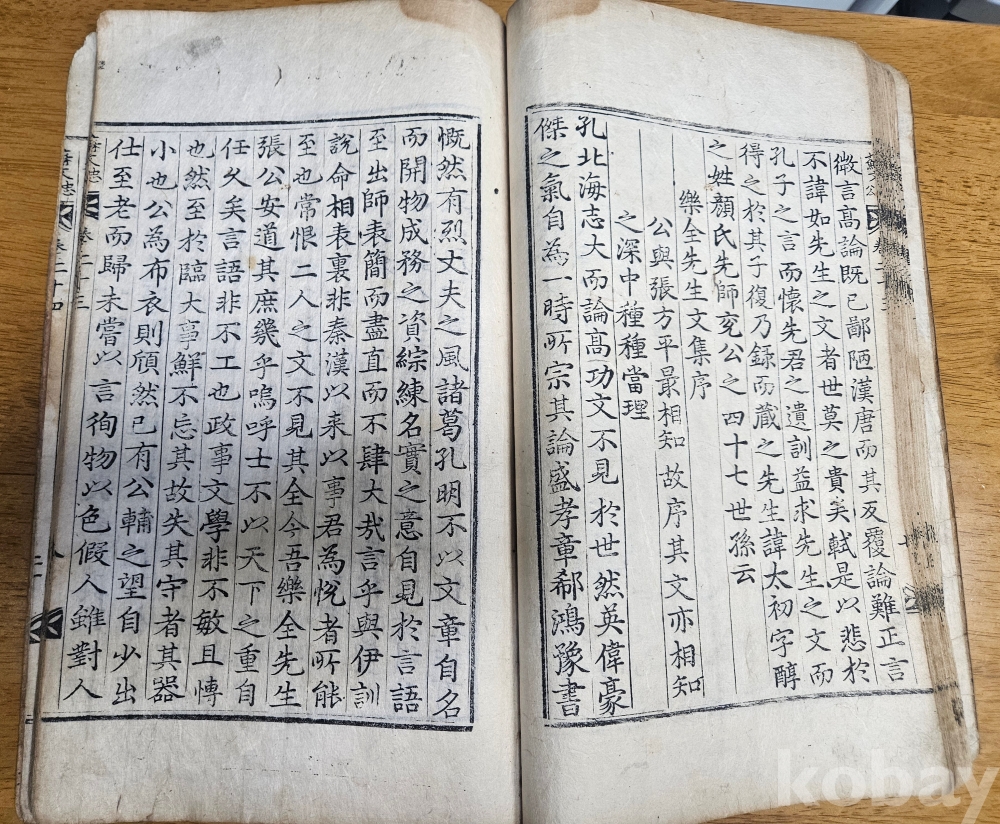 微言高論既已鄙陋漢唐而其反覆論難正言
不諱如先生之文者世莫之貴矣軾是以悲於
孔子之言而懷先君之遺訓益求先生之文而
得之於其子復乃錄而藏之先生諱太初字醇
之姓顏氏先師兗公之四十七世孫云
樂全先生文集序
公與張方平最相知故序其文亦相知
之深中種種當理
孔北海志大而論高功文不見於世然英偉豪
傑之氣自為一時所宗其論盛孝章郗鴻豫書
慨然有烈丈夫之風諸葛孔明不以文章自名
而開物成務之資綜練名實之意自見於言語
至出師表簡而盡直而不肆大哉言乎與伊訓
說命相表裏非秦漢以来以事君為悅者所能
至也常恨二人之文不見其全今吾樂全先生
張公安道其庶幾乎嗚呼士不以天下之重自
任久矣言語非不工也政事文學非不敏且博
也然至於臨大事鮮不忘其故失其守者其器
小也公為布衣則頎然已有公輔之望自少出
仕至老而歸未嘗以言徇物以色假人雖對人
卷二十三
卷二十四
kobay